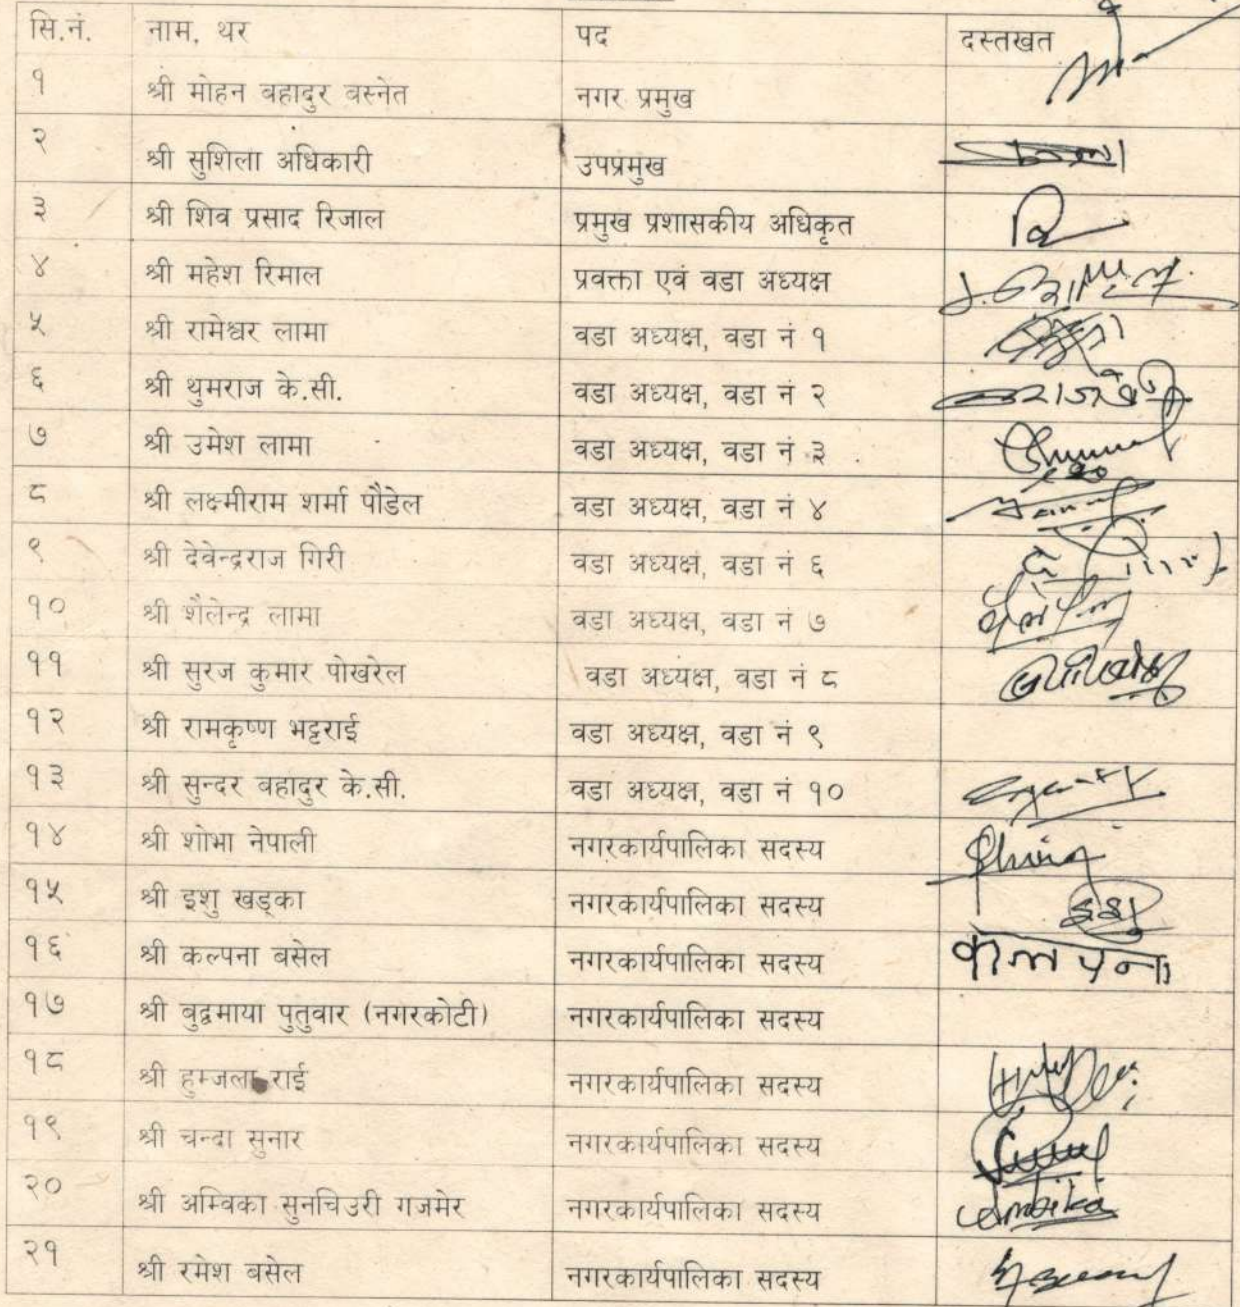 सि.नं. नाम, थर पद दस्तखत
१ श्री मोहन बहादुर बस्नेत नगर प्रमुख
२ श्री सुशिला अधिकारी उपप्रमुख
३ श्री शिव प्रसाद रिजाल प्रमुख प्रशासकीय अधिकृत
४ श्री महेश रिमाल प्रवक्ता एवं वडा अध्यक्ष
५ श्री रामेश्वर लामा वडा अध्यक्ष, वडा नं १
६ श्री थुमराज के.सी. वडा अध्यक्ष, वडा नं २
७ श्री उमेश लामा वडा अध्यक्ष, वडा नं ३
८ श्री लक्ष्मीराम शर्मा पौडेल वडा अध्यक्ष, वडा नं ४
९ श्री देवेन्द्रराज गिरी वडा अध्यक्ष, वडा नं ६
१० श्री शैलेन्द्र लामा वडा अध्यक्ष, वडा नं ७
११ श्री सुरज कुमार पोखरेल वडा अध्यक्ष, वडा नं ८
१२ श्री रामकृष्ण भट्टराई वडा अध्यक्ष, वडा नं ९
१३ श्री सुन्दर बहादुर के.सी. वडा अध्यक्ष, वडा नं १०
१४ श्री शोभा नेपाली नगरकार्यपालिका सदस्य
१५ श्री इशु खड्का नगरकार्यपालिका सदस्य इशु
१६ श्री कल्पना बसेल नगरकार्यपालिका सदस्य कल्पना
१७ श्री बुद्धमाया पुतुवार (नगरकोटी) नगरकार्यपालिका सदस्य
१८ श्री हुम्जला राई नगरकार्यपालिका सदस्य
१९ श्री चन्दा सुनार नगरकार्यपालिका सदस्य
२० श्री अम्विका सुनचिउरी गजमेर नगरकार्यपालिका सदस्य Ambika
२१ श्री रमेश बसेल नगरकार्यपालिका सदस्य